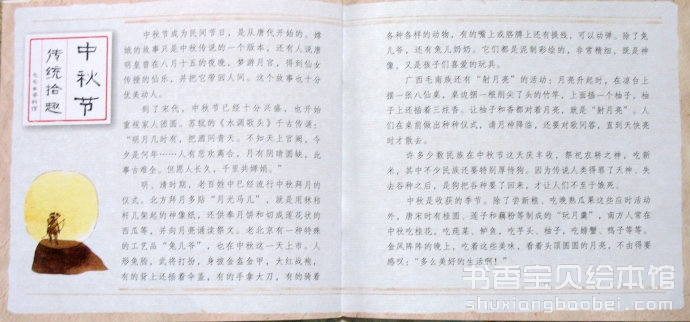 中秋节
传统拾趣
中秋节成为民间节日，是从唐代开始的。嫦
娥的故事只是中秋传说的一个版本，还有人说唐
明皇曾在八月十五的夜晚，梦游月宫，得到仙女
传授的仙乐，并把它带回人间。这个故事也十分
优美动人。
到了宋代，中秋节已经十分兴盛，也开始
重视家人团圆。苏轼的《水调歌头》千古传诵：
“明月几时有，把酒问青天。不知天上宫阙，今
夕是何年……人有悲欢离合，月有阴晴圆缺，此
事古难全。但愿人长久，千里共婵娟。”
明、清时期，老百姓中已经流行中秋拜月的
仪式。北方拜月多贴“月光马儿”，就是用秫秸
秆儿架起的神像纸，还供奉月饼和切成莲花状的
西瓜等，并向月亮诵读祭文。老北京有一种特殊
的工艺品“兔儿爷”，也在中秋这一天上市。人
形兔脸，武将打扮，身披金盔金甲，大红战袍，
有的背上还插着伞盖，有的手拿大刀，有的骑着
各种各样的动物，有的嘴上或胳膊上还有提线，可以动弹。除了兔
儿爷，还有兔儿奶奶。它们都是泥制彩绘的，非常精细，既是神
像，又是孩子们喜爱的玩具。
广西毛南族还有“射月亮”的活动：月亮升起时，在凉台上
摆一张八仙桌，桌边捆一根削尖了头的竹竿，上面插一个柚子，柚
子上还插着三炷香。让柚子和香都对着月亮，就是“射月亮”。人
们在桌前做出种种仪式，请月神降临，还要对歌问答，直到天快亮
时才散去。
许多少数民族在中秋节这天庆丰收，祭祀农耕之神，吃新
米，其中不少民族还要特别厚待狗。因为传说人类得罪了天神、失
去谷种之后，是狗把谷种要了回来，才让人们不至于饿死。
中秋是收获的季节。除了尝新粮、吃瓜果这些应时活动
外，唐宋时有桂圆、莲子和藕粉等制成的“玩月羹”，南方人常在
中秋吃桂花、吃菱菜、鲈鱼、吃芋头、柚子，吃螃蟹、鸭子等等。
金风阵阵的晚上，吃着这些美味，看着头顶圆圆的月亮，不由得要
感叹：“多么美好的生活啊！”
书香宝贝绘本馆
shuxiangbaobei.com